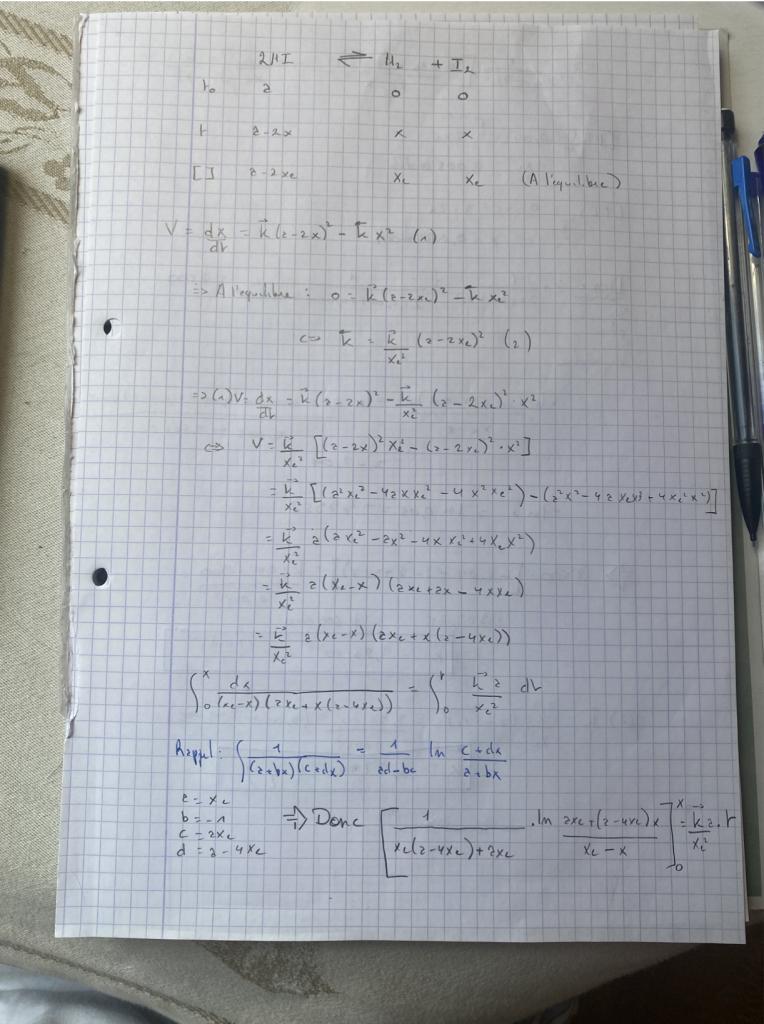 2HI ⇌ H₂ + I₂
t₀ a 0 0
t a-2x x x
[] a-2xₑ xₑ xₑ (A l'équilibre)
V = dx/dt = k⃗ (a-2x)² - k⃖ x² (1)
=> A l'équilibre : 0 = k⃗ (a-2xₑ)² - k⃖ xₑ²
<=> k⃖ = k⃗/xₑ² (a-2xₑ)² (2)
=> (1) V = dx/dt = k⃗ (a-2x)² - k⃗/xₑ² (a-2xₑ)² · x²
<=> V = k⃗/xₑ² [(a-2x)² xₑ² - (a-2xₑ)² · x²]
= k⃗/xₑ² [(a²xₑ² - 4axxₑ² - 4x²xₑ²) - (a²x² - 4axₑx² + 4xₑ²x²)]
= k⃗/xₑ² a(axₑ² - ax² - 4xxₑ² + 4xₑx²)
= k⃗/xₑ² a(xₑ-x)(axₑ + ax - 4xxₑ)
= k⃗/xₑ² a(xₑ-x)(axₑ + x(a-4xₑ))
∫₀ˣ dx/((xₑ-x)(axₑ + x(a-4xₑ))) = ∫₀ᵗ k⃗a/xₑ² dt
Rappel : ∫ 1/((a+bx)(c+dx)) = 1/(ad-bc) ln (c+dx)/(a+bx)
a = xₑ
b = -1
c = axₑ
d = a-4xₑ
=> Donc [1/(xₑ(a-4xₑ)+axₑ) · ln (axₑ+(a-4xₑ)x)/(xₑ-x)]₀ˣ = k⃗a/xₑ² · t